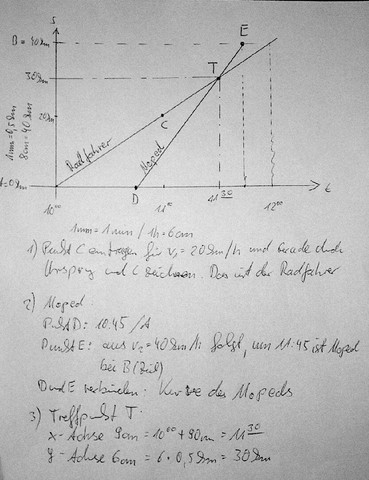 s
B = 40km
E
30km
T
20km
C
1mm=0,5km
8cm=40km
Radfahrer
Moped
A=0km
D
t
10⁰⁰
11⁰
11³⁰
12⁰⁰
1mm=1min / 1h=6cm
1) Punkt C eintragen für v₁=20km/h und Gerade durch
Ursprung und C zeichnen. Das ist der Radfahrer
2) Moped
Punkt D: 10.45 / A
Punkt E: aus v₂=40km/h folgt, um 11.45 ist Moped
bei B (Ziel)
D und E verbinden - Kurve des Mopeds
3) Treffpunkt T:
x-Achse 9cm = 10⁰⁰ + 90min = 11³⁰
y-Achse 6cm = 6 · 0,5km = 30km